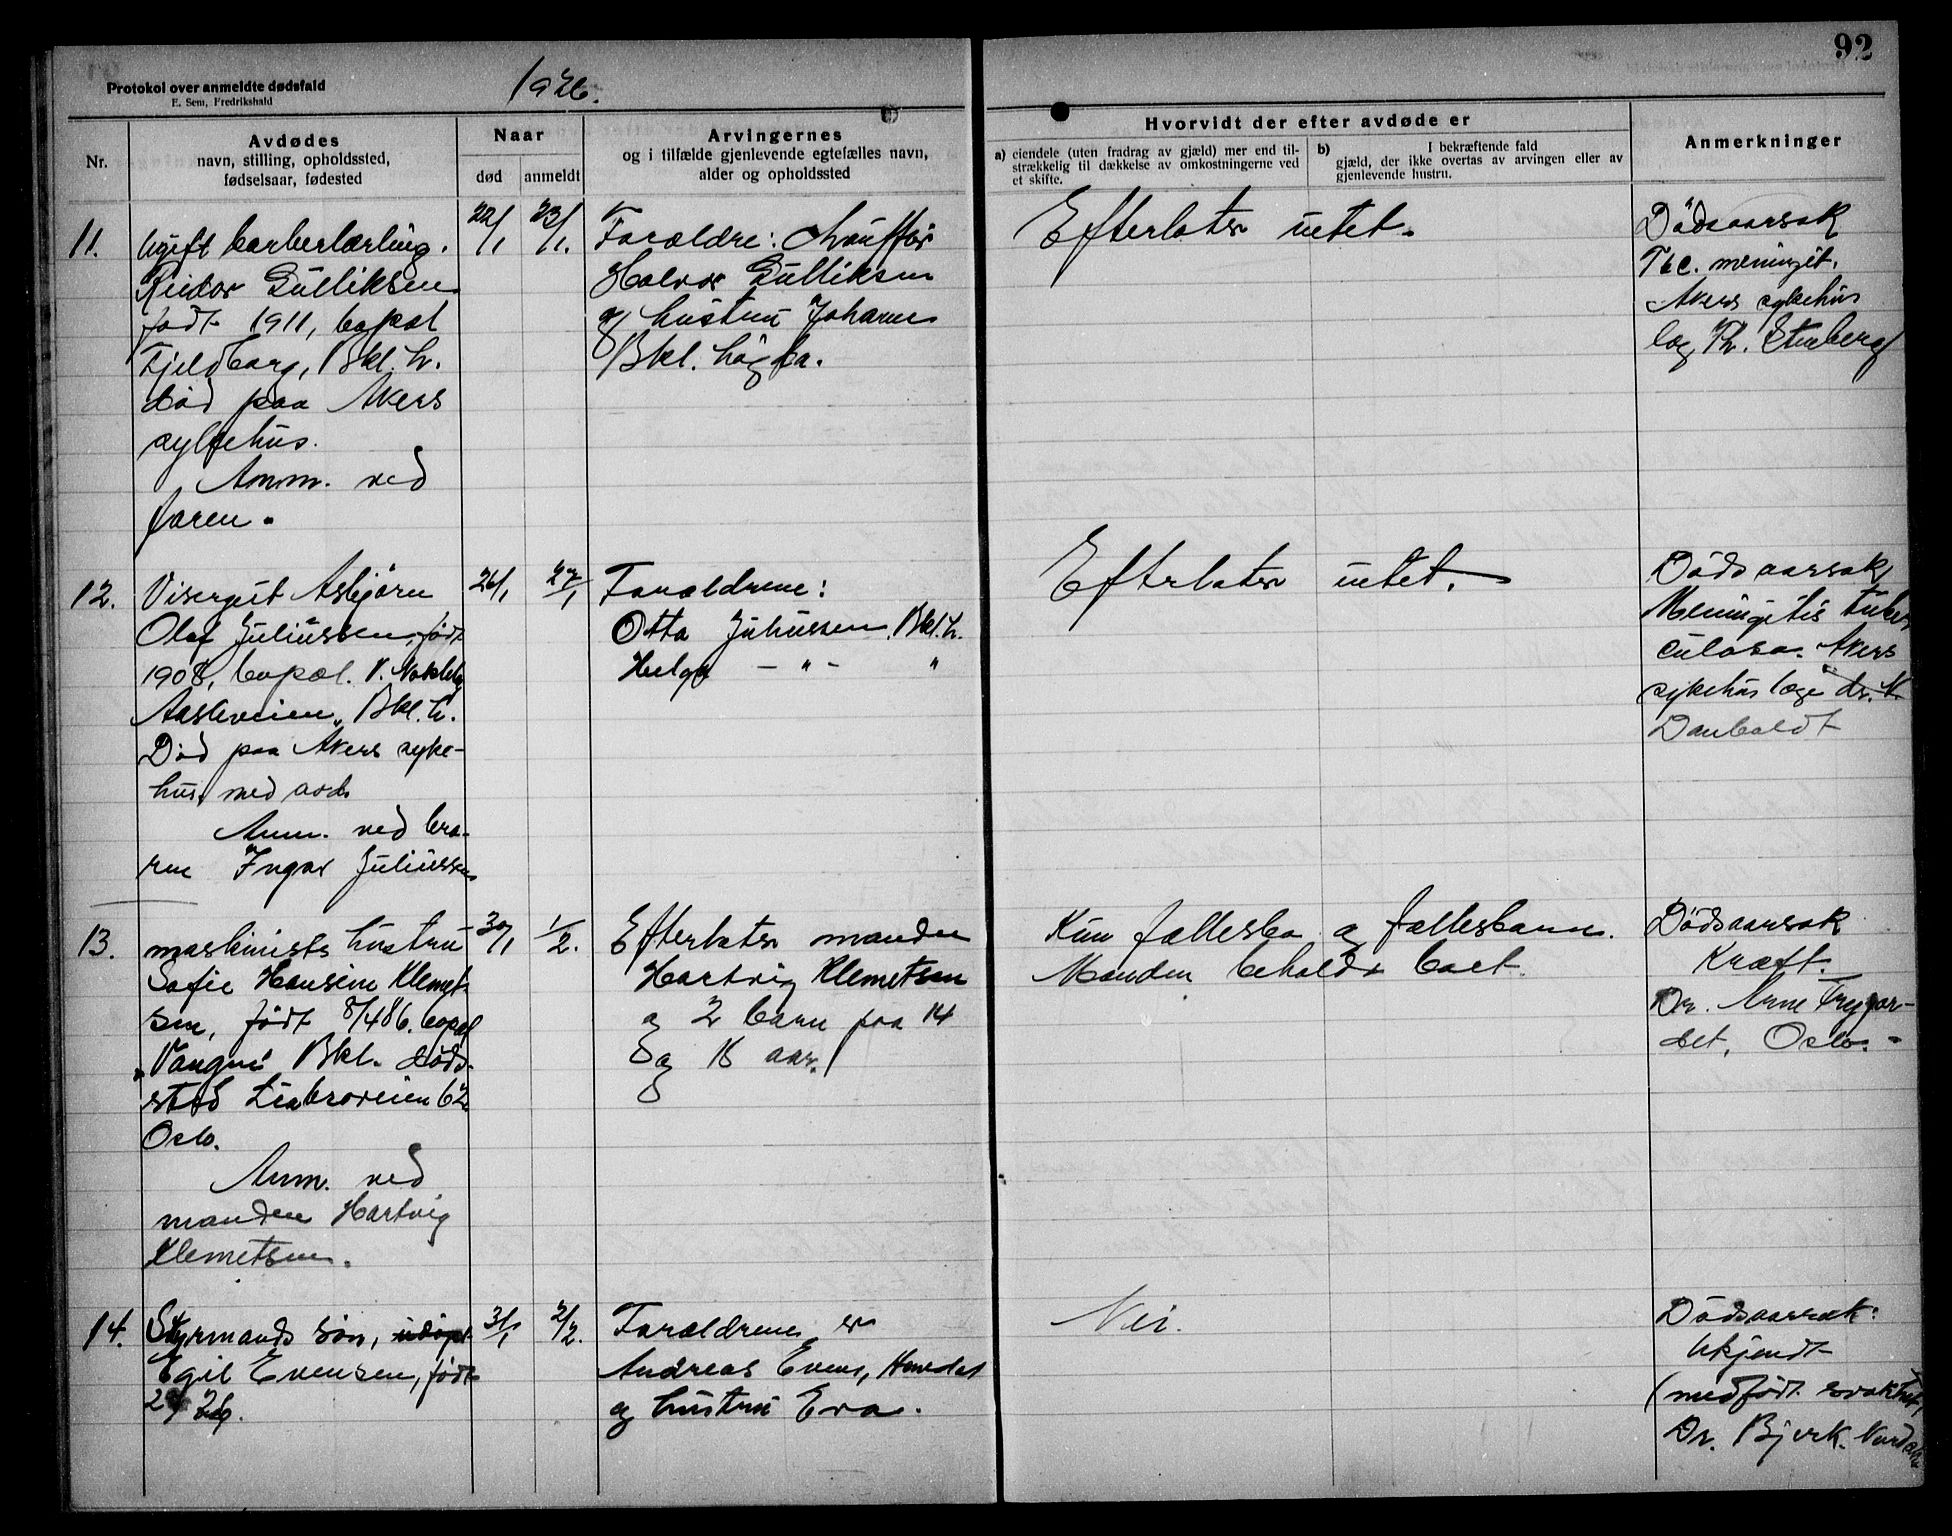 92
Protokol over anmeldte dødsfald
E. Sem, Fredrikshald
1926.
Nr.
Avdødes
navn, stilling, opholdssted,
fødselsaar, fødested
Naar
død
anmeldt
Arvingernes
og i tilfælde gjenlevende egtefælles navn,
alder og opholdssted
Hvorvidt der efter avdøde er
a) eiendele (uten fradrag av gjæld) mer end til-
strækkelig til dækkelse av omkostningerne ved
et skifte.
b) I bekræftende fald
gjæld, der ikke overtas av arvingen eller av
gjenlevende hustru.
Anmerkninger
11.
Ugift barberlærling.
Reidar Gulliksen
født 1911, bopæl
Fjeldborg, Bkl. h.
død paa Akers
sykehus.
Anm. ved
faren.
22/1
23/1.
Forældre: Chauffør
Halvor Gulliksen
og hustru Johanne
Bkl. høgda.
Efterlater intet.
Dødsaarsak
Tbc. meningit.
Akers sykehus
læge Th. Stenberg
12.
Visergut Asbjørn
Olaf Juliussen, født
1908, bopæl. V. Nøkleby
Aasliveien, Bkl. h.
Død paa Akers syke-
hus, med aods
Anm. ved bro-
ren Ingar Juliussen
26/1
27/1
Forældrene:
Otto Juliussen, Bkl. h.
Helga - " - "
Efterlater intet.
Dødsaarsak
Meningitis tuber
culosa. Akers
sykehus læge dr. N
Danboldt
13.
maskinists hustru
Sofie Hansine Klemet-
sen, født 8/4 86. bopæl
"Vangnes Bkl. døds-
sted Liabroveien 62
Oslo.
Anm. ved
manden Hartvig
Klemetsen.
30/1
1/2.
Efterlater manden
Hartvig Klemetsen
og 2 barn paa 14
og 16 aar.
Kun fællesbo og fællesbarn.
Manden beholder boet.
Dødsaarsak
Kræft.
Dr. Arne
Oslo.-
14.
Styrmands søn, udøpt
Egil Evensen, født
26.
31/1
2/2.
Forældrene er
Andreas Evens,
og hustru Eva.
Nei.
Dødsaarsak:
Ukjendt
(medfødt svakhet)
Dr. Bjerk.